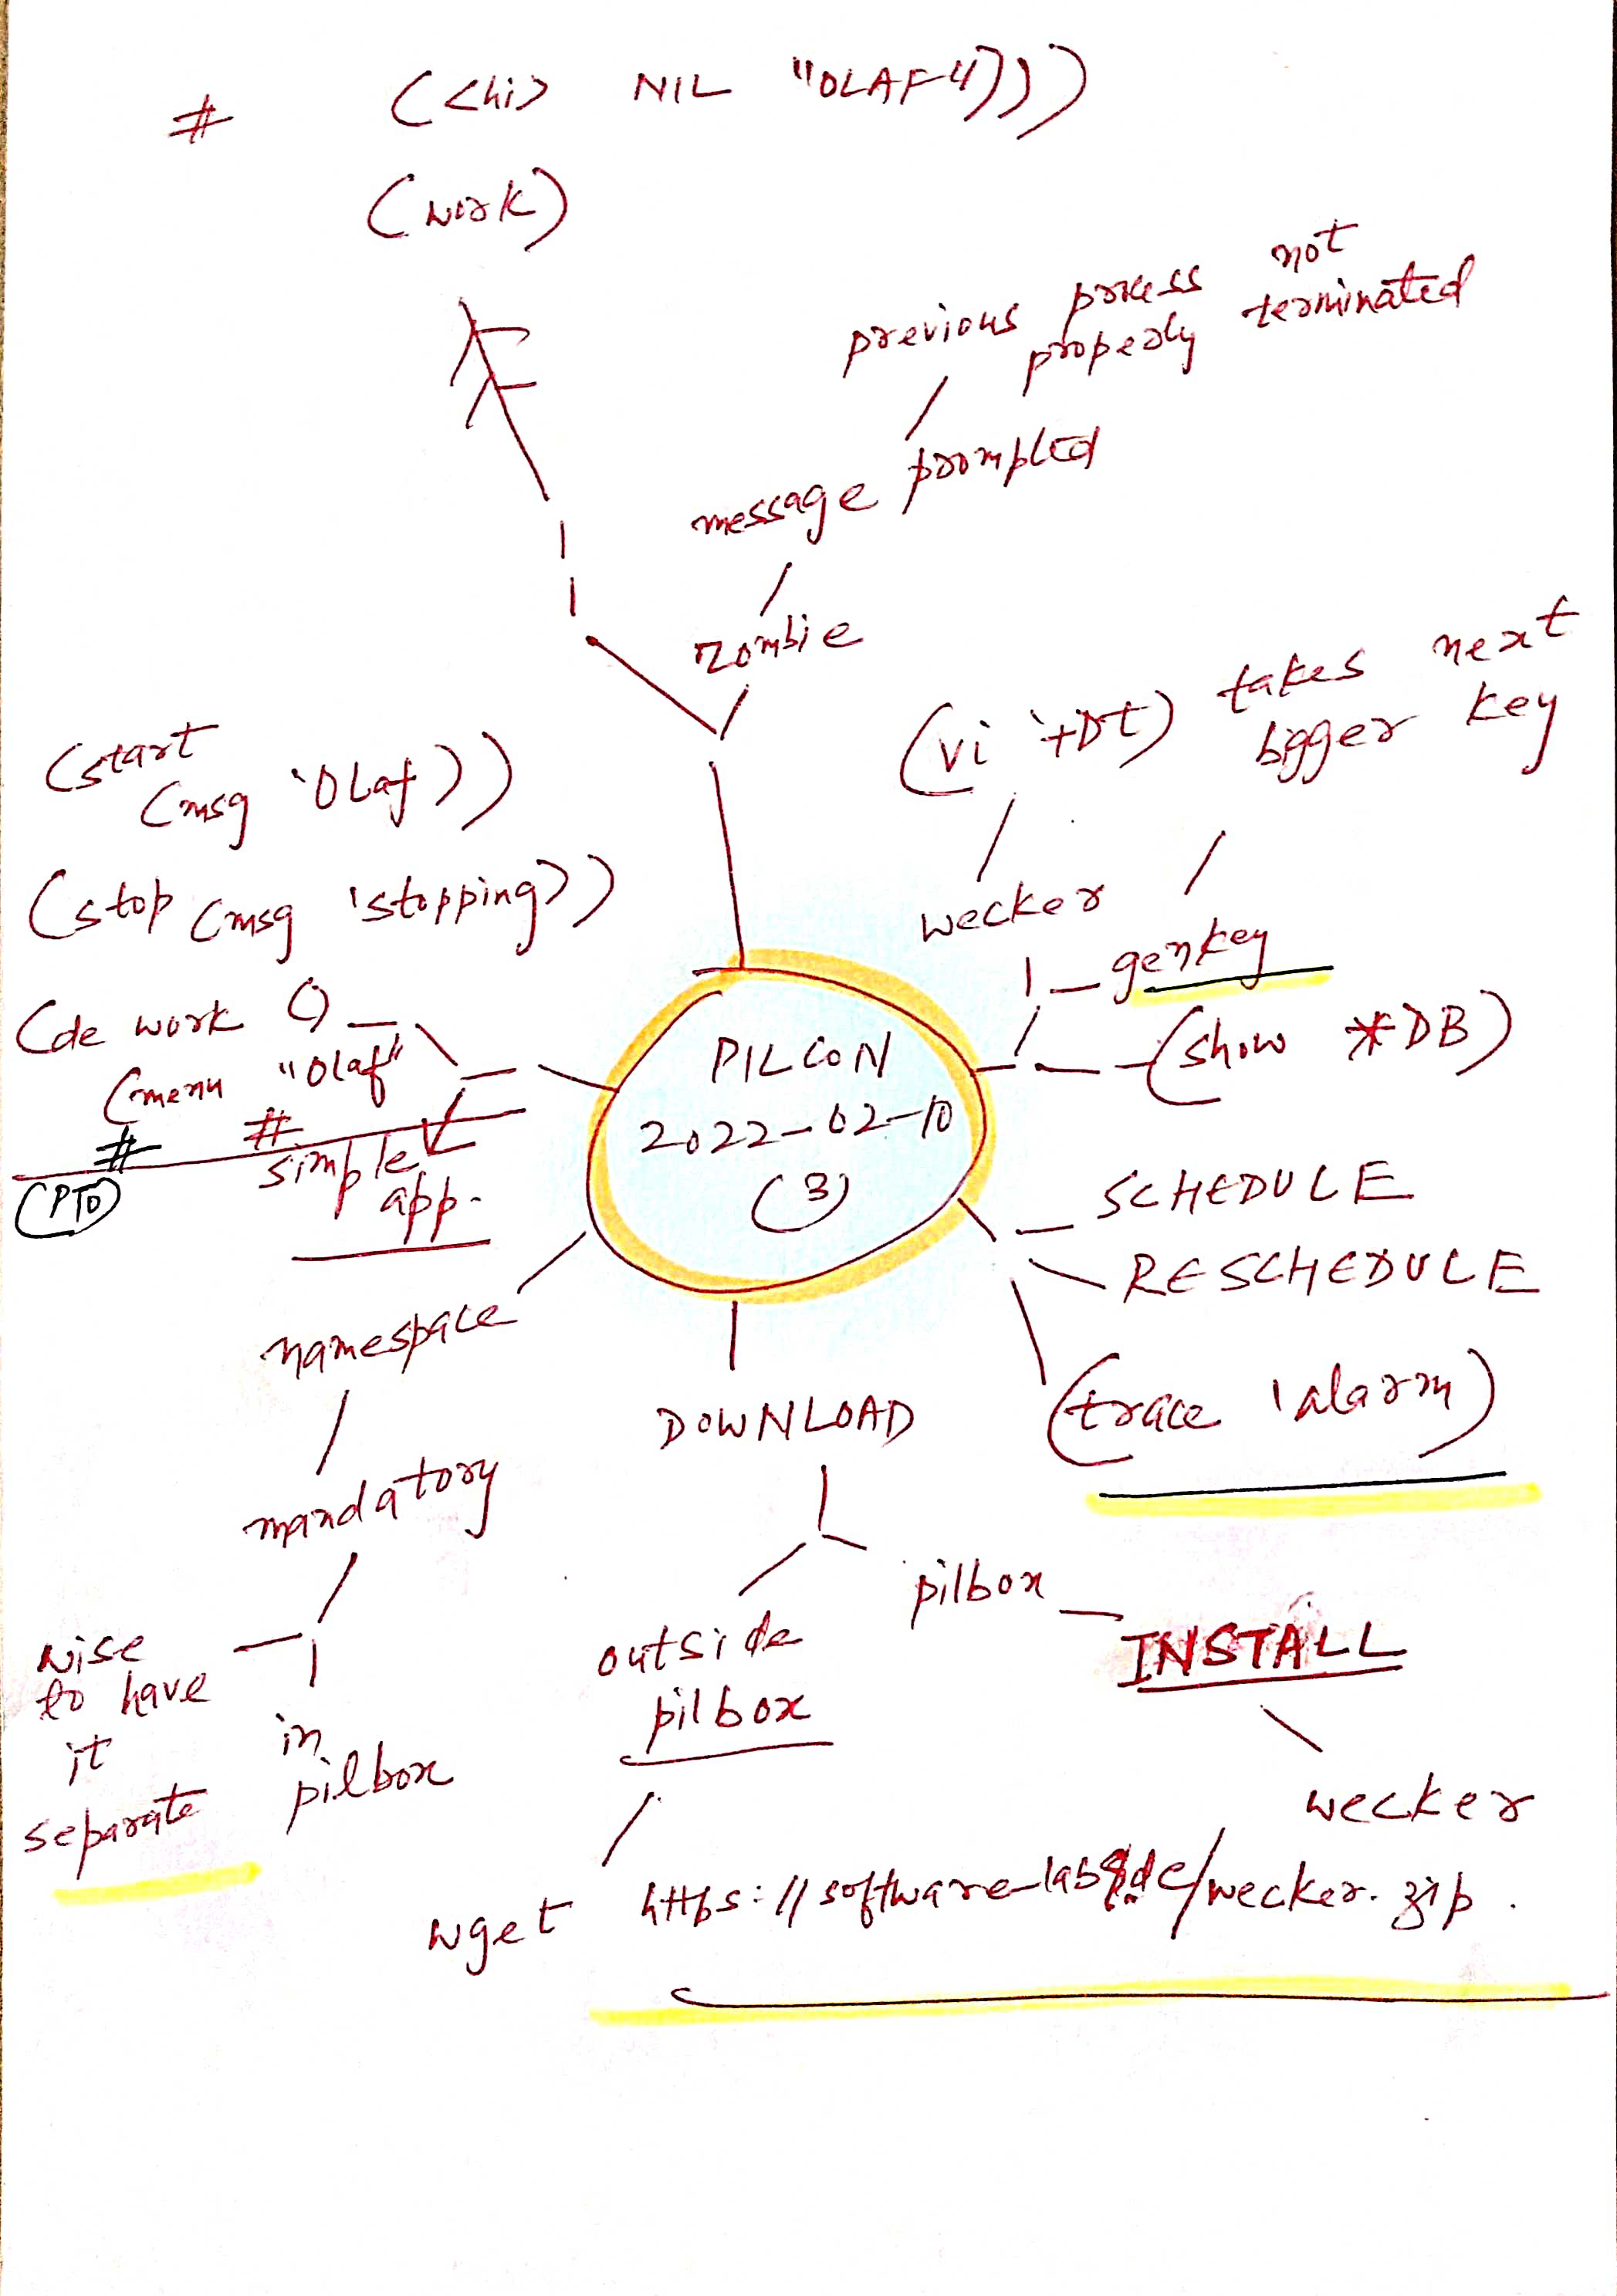 # (<hi> NIL "OLAF")))
(work)
previous process not
properly terminated
message prompted
zombie
(vi '+Dt) takes next
bigger key
wecker
genkey
(show *DB)
(start
(msg 'Olaf))
(stop (msg 'stopping))
(de work ()
(menu "Olaf"
# #
(PTO)
simple
app.
PILCON
2022-02-10
(3)
SCHEDULE
RESCHEDULE
(trace 'alarm)
namespace
mandatory
wise
to have
it
separate
in
pilbox
DOWNLOAD
outside
pilbox
pilbox
INSTALL
wecker
wget https://software-lab.de/wecker.zip.